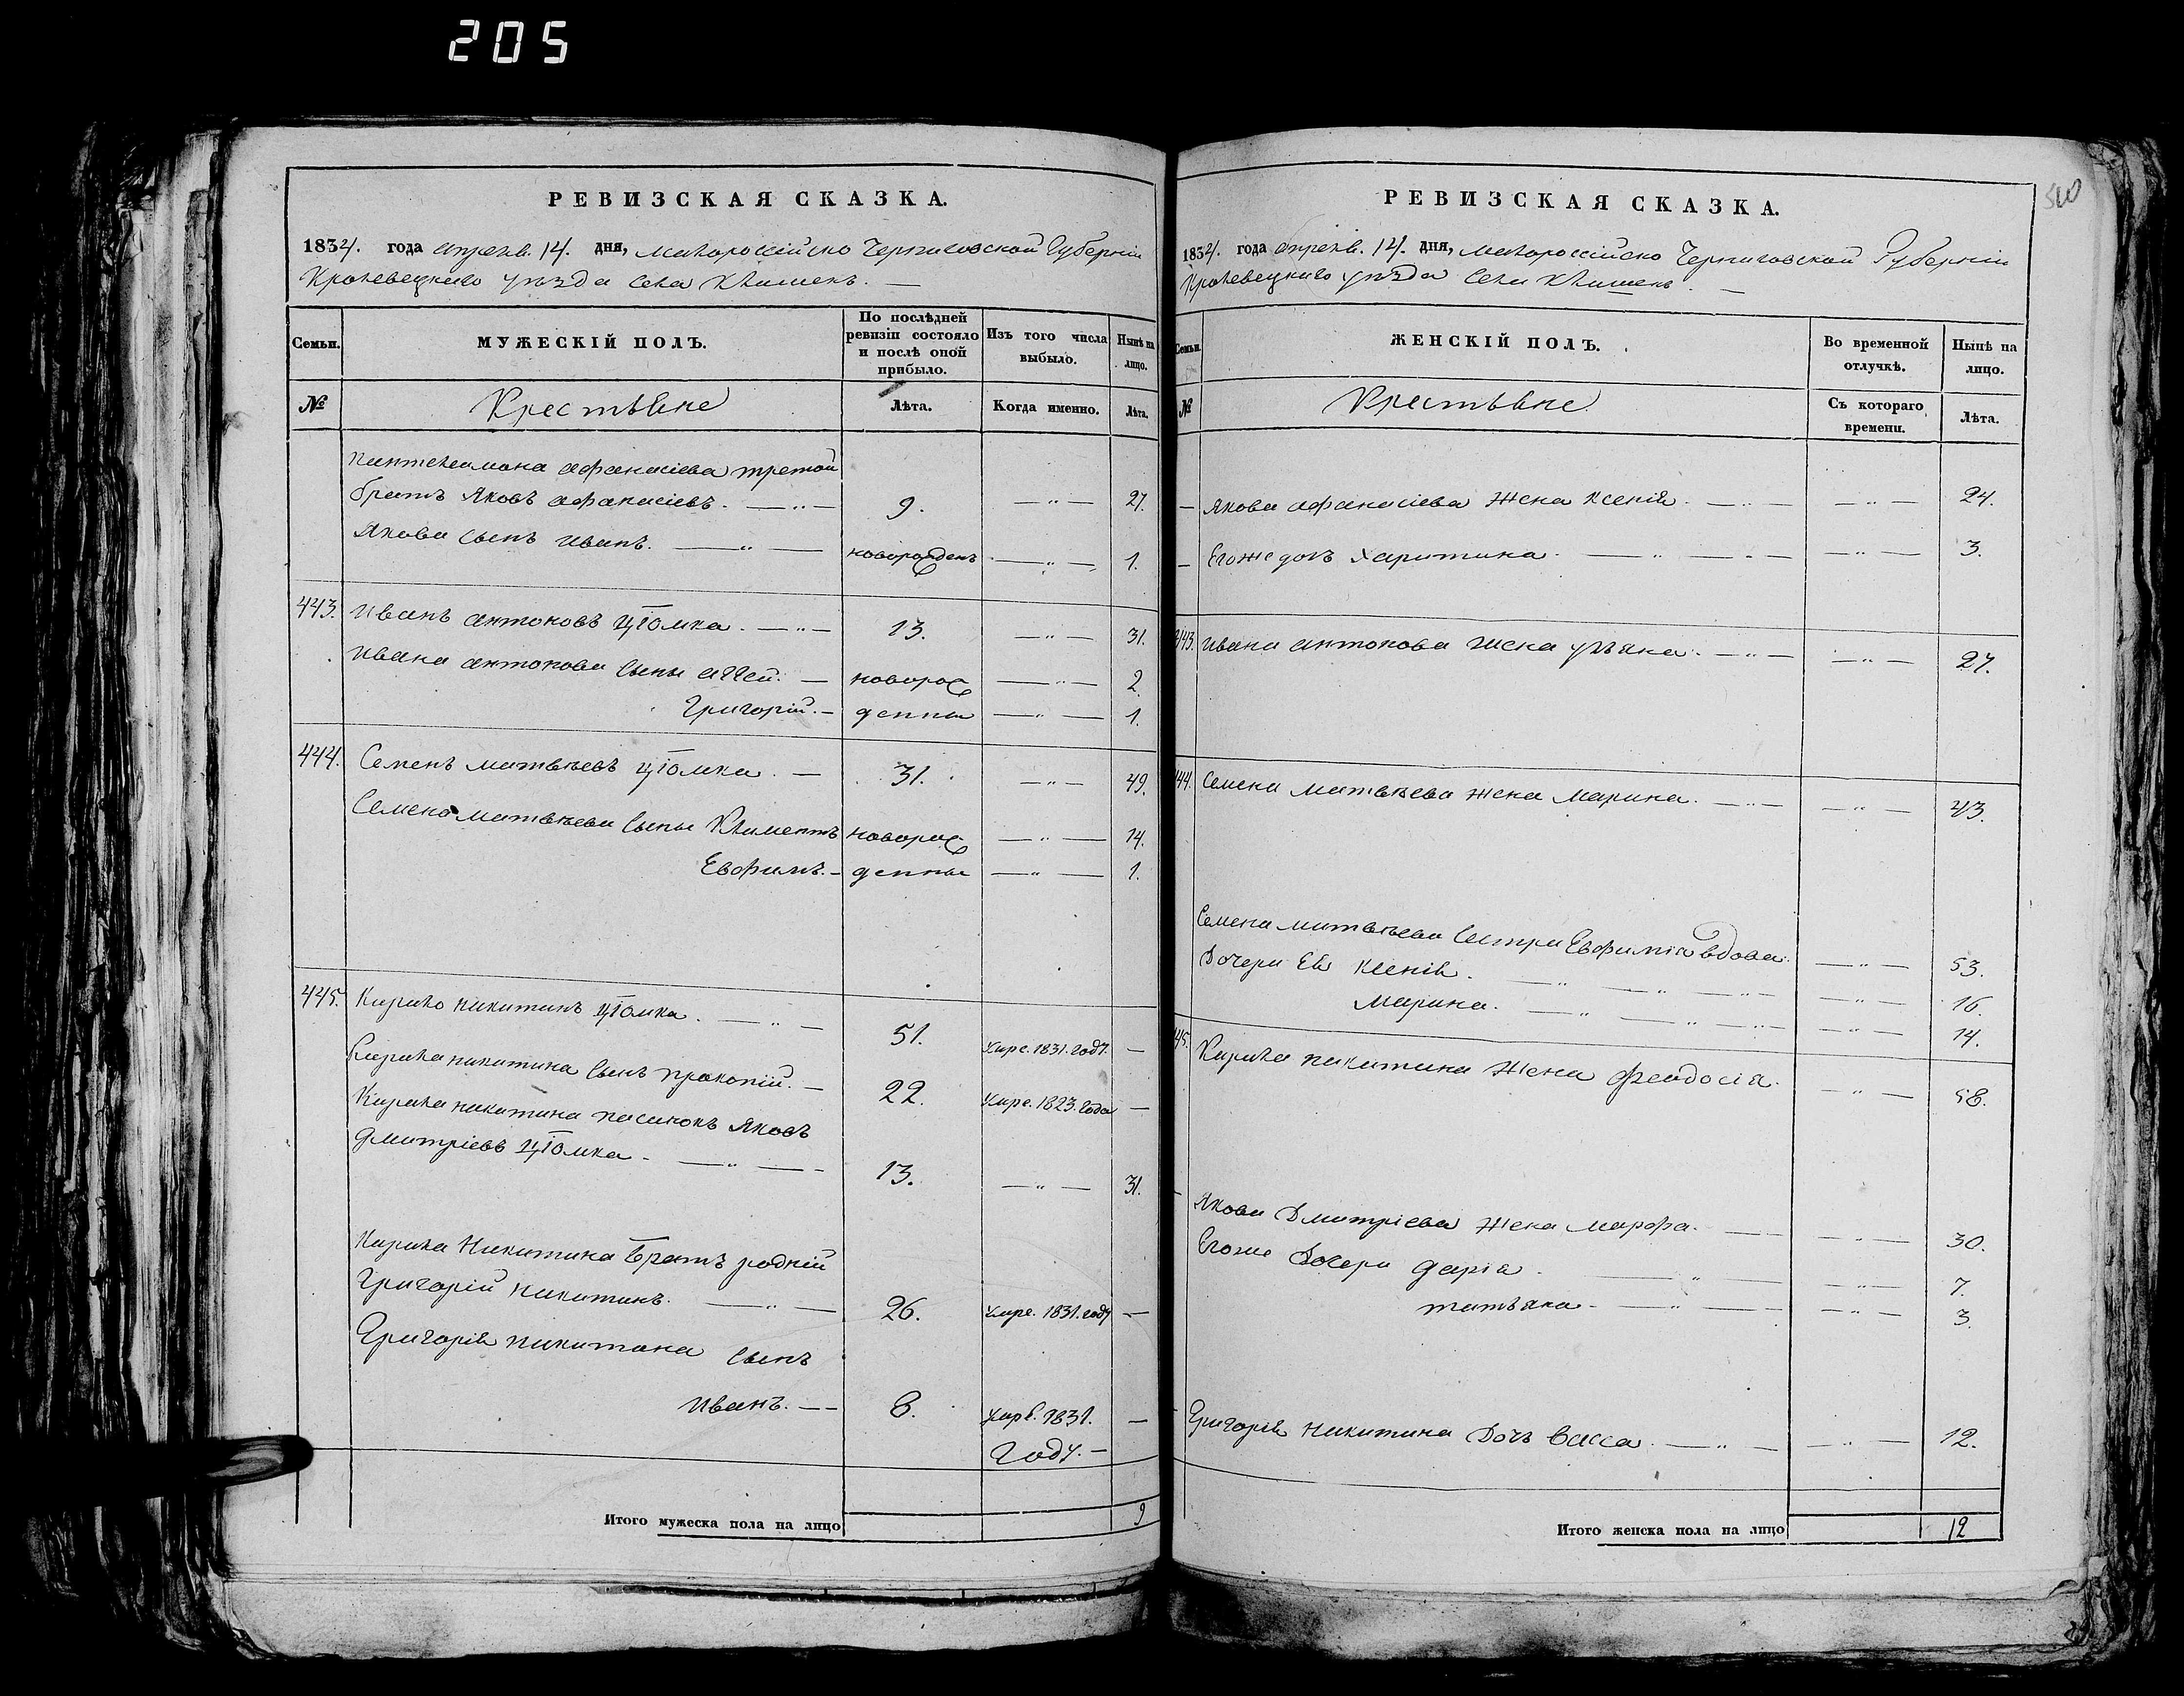 205
РЕВИЗСКАЯ СКАЗКА.
1834. года апрелѧ. 14. дня, малороссійско Черниговской Губерніи
Кролевецкаго уѣзда Села Клишекъ. —
Семьи.
МУЖЕСКІЙ ПОЛЪ.
По послѣдней ревизіи состояло и послѣ оной прибыло.
Изъ того числа выбыло.
Нынѣ на лицо.
№
Крестьяне
Лѣта.
Когда именно.
Лѣта.
Пантелеимона афанасіева третой
братъ Яковъ афанасіевъ. — 9. — 27.
Якова сынъ иванъ. — новорожденъ — 1.
443. иванъ антоновъ Цюмка. — 13. — 31.
ивана антонова сыны — новорож — 2.
Григорій. — денны — 1.
444. Семенъ матвѣевъ Цюмка. — 31. — 49.
Семена матвѣева сыны Климентъ новорож — 14.
Евфимъ. — денны — 1.
445. Кирило никитинъ Цюмка. — 51. умре. 1831. году. —
Кирила никитина сынъ прокопій. — 22. умре. 1823. года —
Кирила никитина пасинокъ Яковъ
дмитріевъ Цюмка — 13. — 31.
Кирила Никитина братъ родній
Григорій Никитинъ. — 26. умре. 1831. году —
Григорія никитина сынъ
иванъ. — 8. умре. 1831. —
году. —
Итого мужеска пола на лицо 9
РЕВИЗСКАЯ СКАЗКА.
1834. года апрелѧ. 14. дня, малороссійско Черниговской Губерніи
Кролевецкаго уѣзда Села Клишекъ. —
Семьи.
ЖЕНСКІЙ ПОЛЪ.
Во временной отлучкѣ.
Нынѣ на лицо.
№
Крестьяне
Съ котораго времени.
Лѣта.
— Якова афанасіева жена ксенія. — 24.
— Егоже дочь харитина. — 3.
443. ивана антонова жена ульяна. — 27.
444. Семена матвѣева жена марина. — 43.
Семена матвѣева сестра Евфимія вдова. — 53.
Дочери Ея ксенія. — 16.
марина. — 14.
445. Кирила никитина жена феодосія. — 58.
— Якова Дмитріева жена марфа. — 30.
Егоже дочери дарія. — 7.
татьяна. — 3.
— Григорія Никитина дочь васса. — 12.
Итого женска пола на лицо 12